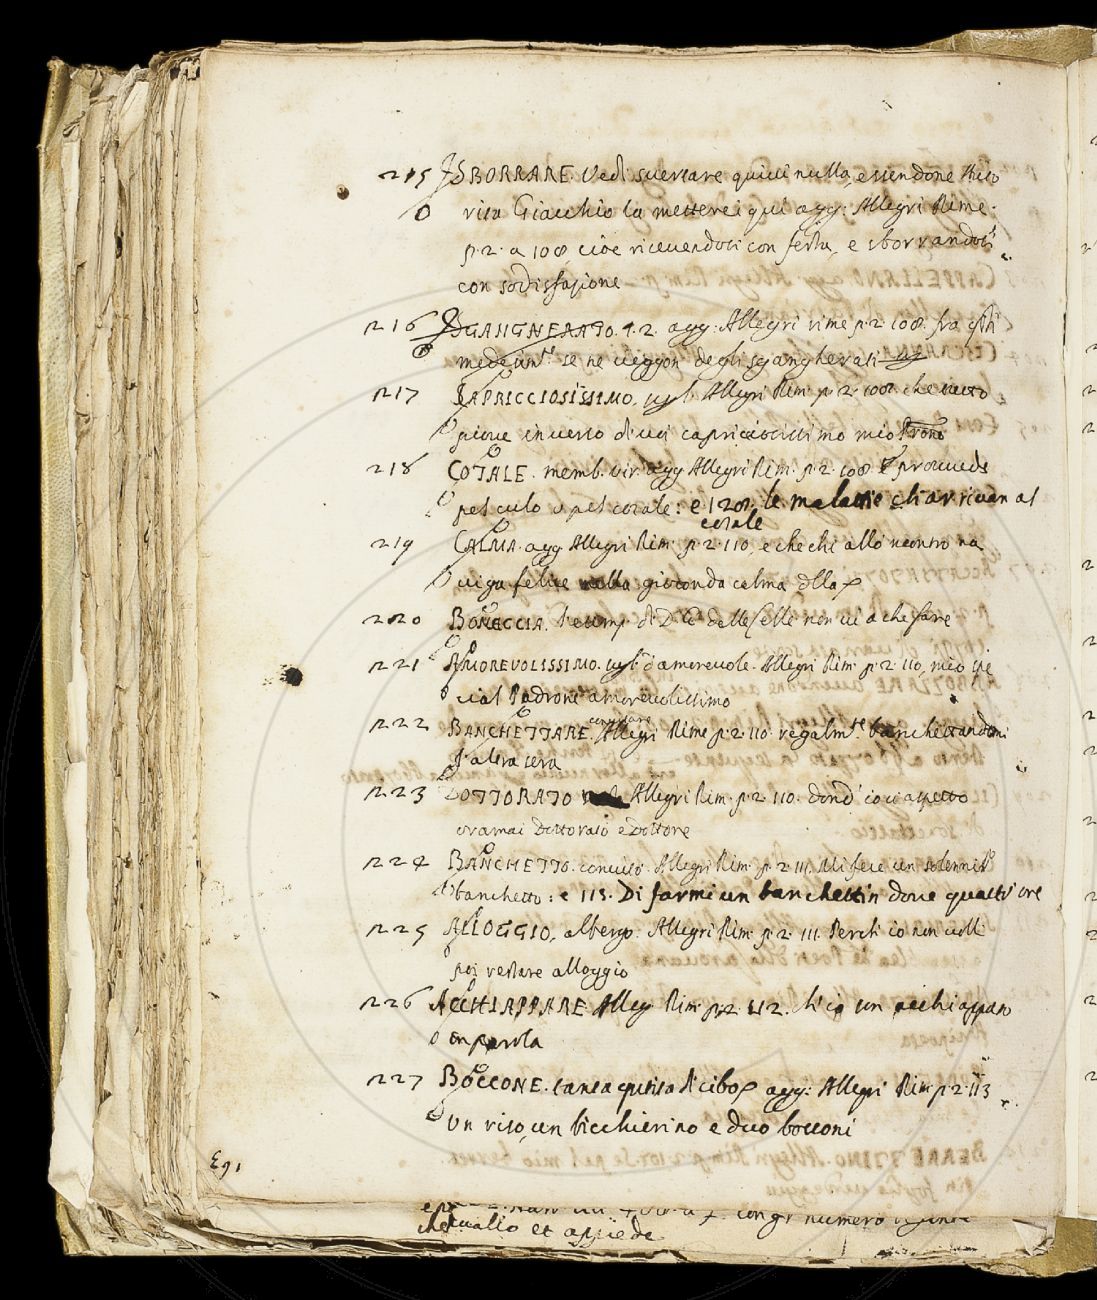 215 SBORRARE. Vedi sversare quivi nulla, essendone stato
rita Giacchio la metterei qui agg: Allegri Rime.
p. 2. a 108. cioè ricevendoti con festa, e sborrandoti
con sodisfazione
216 SGANGHERATO. §. 2. agg. Allegri rime p 2 108. fra gsti
medesim.te se ne veggon degli sgangherati
217 CAPRICCIOSISSIMO. Allegri Rim. p. 2. 108. che tutto
piove in verso di voi capricciosissimo mio Prone
218 COTALE. memb. vir. agg Allegri Rim. p. 2. 108 provvede
pel culo o pel cotale: e 120. le malattie ch'arrivan al
cotale
219 CALMA. agg Allegri Rim. p. 2. 110, e che chi allo 'ncontro na
viga felice nella gioconda calma
220 BONACCIA. di delle Celle non vi a che fare
221 AMOREVOLISSIMO. d'amorevole. Allegri Rim. p. 2. 110, mio
Padrone amorevolissimo
222 BANCHETTARE. convitare Allegri Rime p. 2. 110 regalm.te banchettandomi
l'altra sera
223 DOTTORATO Allegri Rim. p. 2. 110. dond' io vi aspetto
oramai Dottorato e Dottore
224 BANCHETTO. convito. Allegri Rim. p. 2. 111. Mi fece un solenniss.o
banchetto: e 113. Di farmi un banchettin dove quattr'ore
225 ALLOGGIO, albergo. Allegri Rim. p. 2. 111. Perch' io non volli
poi restare alloggio
226 ACCHIAPPARE Alleg Rim p. 2. 112. ch' io un acchiappato
in parola
227 BOCCONE. tanta qutità di cibo agg: Allegri Rim p. 2. 113
Un riso, un bicchierino e duo bocconi
191
con gr numero
chevallo et appiede